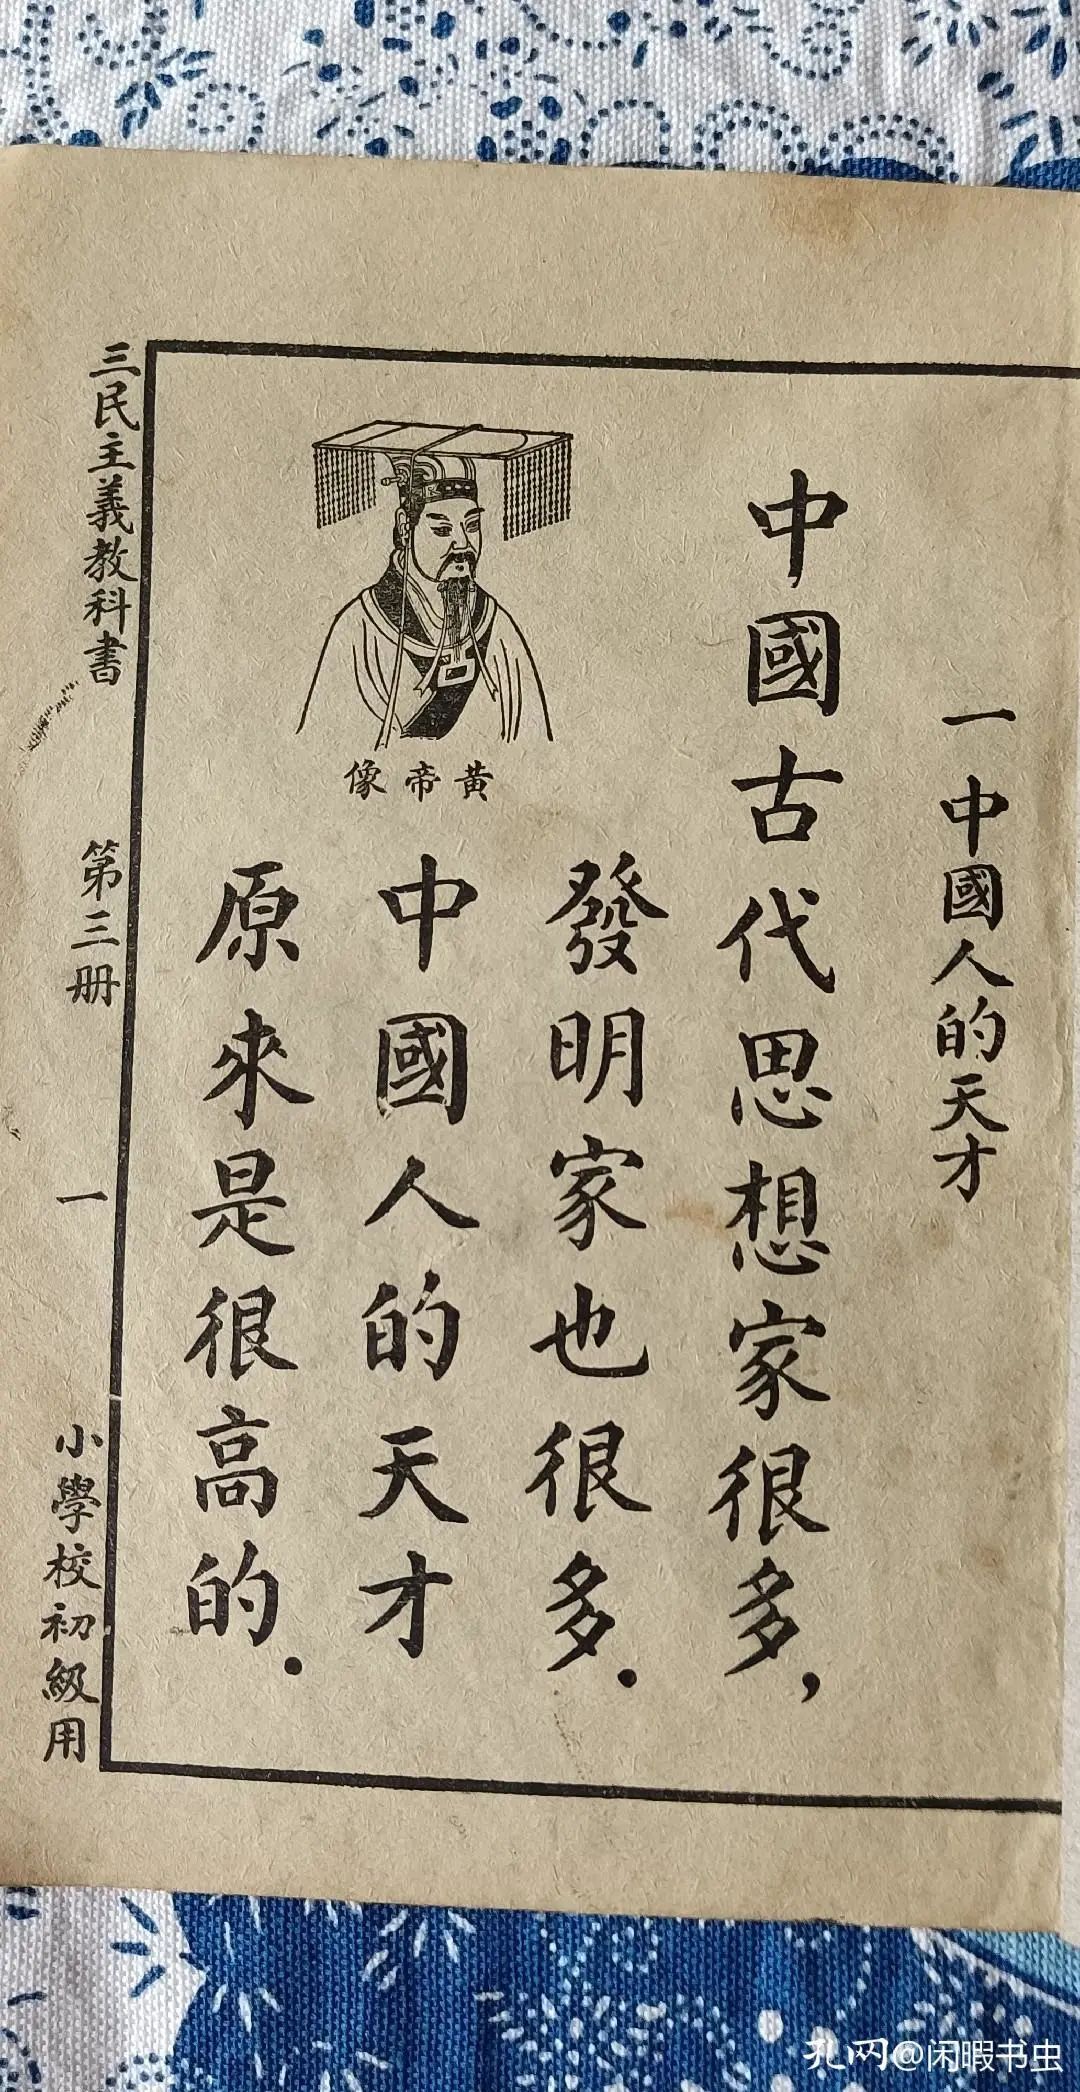 一 中國人的天才
中國古代思想家很多,
發明家也很多.
中國人的天才
原來是很高的.
像帝黃
三民主義教科書 第三册 一 小學校初級用
孔网@闲暇书虫